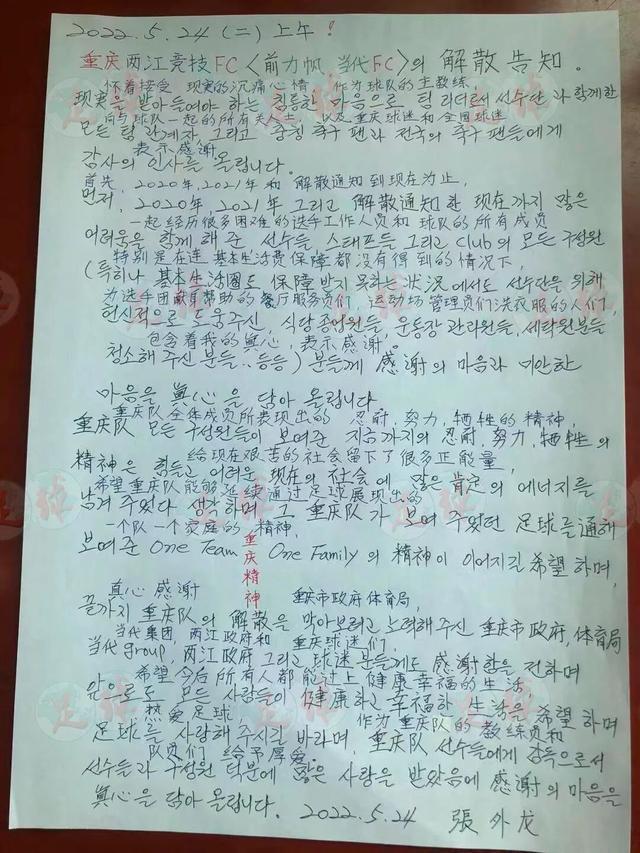 2022.5.24 (二) 上午!
重庆两江竞技FC〈前力帆 当代FC〉의 解散告知。
怀着接受 现实的沉痛心情 作为球队的主教练,
현实을 받아들여야 하는 침통한 마음으로 팀 리더로서 선수단과 함께한
向与球队一起的所有关人士, 以及重庆球迷和全国球迷
모든 팀 관계자, 그리고 충칭 축구 팬과 전국의 축구 팬들에게
表示感谢
감사의 인사를 올립니다.
首先, 2020年,2021年和 解散通知到现在为止,
먼저, 2020年, 2021年 그리고 解散通知 한 现在까지 많은
一起经历很多困难的选手工作人员和 球队的所有成员
어려움을 함께 해 준 선수들, 스태프들 그리고 Club의 모든 구성원
特别是在连 基本生活费保障都没有得到的情况下,
(특히나 基本生活圈도 保障받지 못하는 状况에서도 선수단을 위해
为选手团献身帮助的餐厅服务员们, 运动场管理员们洗衣服的人们,
헌신적으로 도움주신, 식당종업원들, 운동장 관리원들, 세탁원분들
包含着我的真心, 表示感谢。
청소해 주신 분들..등등) 분들께 感谢의 마음과 미안한
마음을 真心을 담아 올립니다
重庆队全体成员所表现出的 忍耐, 努力, 牺牲的精神,
重庆队 모든 구성원들이 보여준 지금까지의 忍耐, 努力, 牺牲의
给现在艰苦的社会留下了很多正能量,
精神은 힘들고 어려운 现在의 社会에 많은 肯定의 에너지를
希望重庆队能够延续通过足球展现出的
남겨 주었다 생각하며, 그 重庆队가 보여 주었던 足球를 通해
一个队一个家庭的 精神,
보여준 One Team One Family의 精神이 이어지길 希望하며,
重庆精神
真心感谢 重庆市政府体育局,
끝까지 重庆队의 解散을 막아보려고 노력해주신 重庆市政府, 体育局
当代集团, 两江政府和 重庆球迷们,
当代group, 两江政府 그리고 球迷 분들께도 感谢함을 전하며
希望今后所有人都能过上健康幸福的生活,
앞으로도 모든 사람들이 健康하고 幸福한 生活을 希望하며
热爱足球 作为重庆队的教练员和
足球를 사랑해 주시길 바라며, 重庆队 선수들에게 감독으로서
队员们 给予厚爱。
선수들과 구성원 덕분에 많은 사랑을 받았음에 感谢의 마음을
真心을 담아 올립니다. 2022.5.24 張外龙